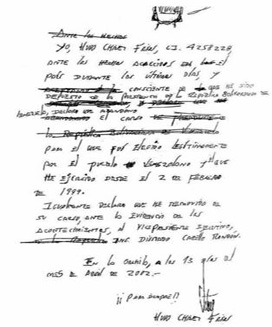 Ante los hechos
Yo, Hugo Chávez Frías, C.I. 4258228,
ante los hechos acaecidos en el
país durante los últimos días, y
consciente de que he sido
depuesto de la Presidencia de la República Bolivariana de
Venezuela, declaro que abandono
el cargo de Presidente
la República Bolivariana de Venezuela
para el que fui electo legítimamente
por el pueblo venezolano y que
he ejercido desde el 2 de febrero
de 1999.
Igualmente declaro que he removido de
su cargo, ante la evidencia de los
acontecimientos, al Vicepresidente Ejecutivo,
Ing. Diosdado Cabello Rondón.
En la ciudad, a los 13 días del
mes de abril de 2002.-
¡¡Para siempre!!
Hugo Chávez Frías